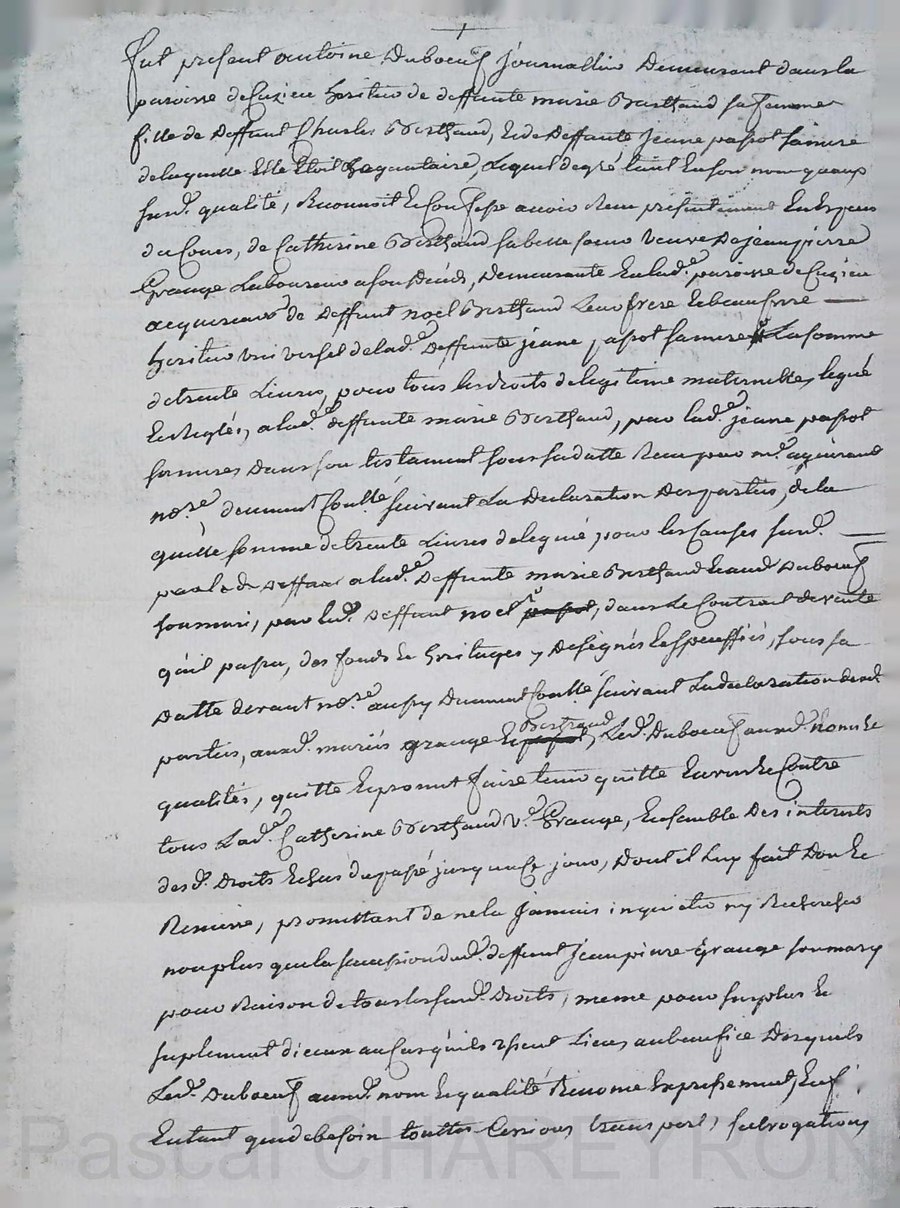 fut present antoine Duboeuf Journallier Demeurant dans la
paroisse de Cuzieu heritier de deffunte marie Berthaud sa femme
fille de Deffunt Charles Berthaud, Et de Deffunte Jeanne papot sa mere
de laquelle Elle Etoit legataire, Lequel de gré tant En son nom quaux
susd. qualité, Reconnoit Et Confesse avoir Receu presentement En Especes
du Cours, de Catherine Berthaud sa belle soeur veuve De jean pierre
Grange Laboureur Demeurante En lad.e paroisse de Cuzieu
acquereurs de Deffunt noel Berthaud Leur frere Et beaufrere
heritier universel de lad.e Deffunte jeanne papot sa mere La somme
de trente Livres, pour tous les droits de legitime maternelle, legué
Et Reglés, a lad.e deffunte marie Berthaud, par lad.e jeanne papot
sa mere Dans son testament sous sa datte Receu par m.e
no.re deument Conllé suivant La Declaration Des parties, de la
quelle somme de trente Livres delegué pour les Causes susd.
a lad.e Deffunte marie Berthaud Et aud. Duboeuf
son mari, par led. Deffunt noel papot, dans Le Contract de vente
qu'il passa, des fonds Et heritages y Designés Et Speciffiés, sous sa
Datte devant no.re aussy Deument Conllé suivant La declaration desd.
parties, auxd. mariés grange Et papot Berthaud, Led. Duboeuf auxd. noms Et
qualités, quitte Et promet faire tenir quitte Envers Et Contre
tous Lad.e Catherine Berthaud v.e Grange, Ensemble Des interets
desd. Droits Echus du passé jusqua Ce jour, Dont il Luy fait Don Et
Remise, promettant de ne la Jamais inquieter ny Rechercher
non plus que la succession dud. deffunt Jean pierre Grange son mary
pour Raison de tous les susd. Droits, meme pour surplus Et
suplement d'iceux au Cas qu'ils Lieu, au benefice Desquels
Led. Duboeuf auxd. nom Et qualité Renonce Expressement, Et
En tant que de besoin touttes Cessions, transport, subrogations
Pascal CHAREYRON